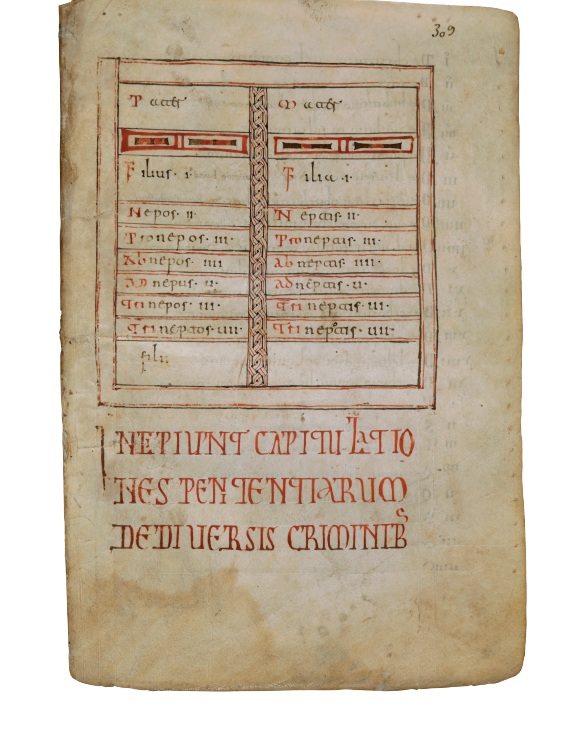 309
Pater Mater
Filius · i · Filia · i ·
Nepos · ii · Neptis · ii ·
Pronepos · iii · Proneptis · iii ·
Abnepos · iiii Abneptis · iiii ·
Adnepus · u · Adneptis · u ·
Trinepos · ui · Trineptis · ui ·
filii
INEPIUNT CAPITULATIO
NES PENITENTIARUM
DE DIUERSIS CRIMINIB